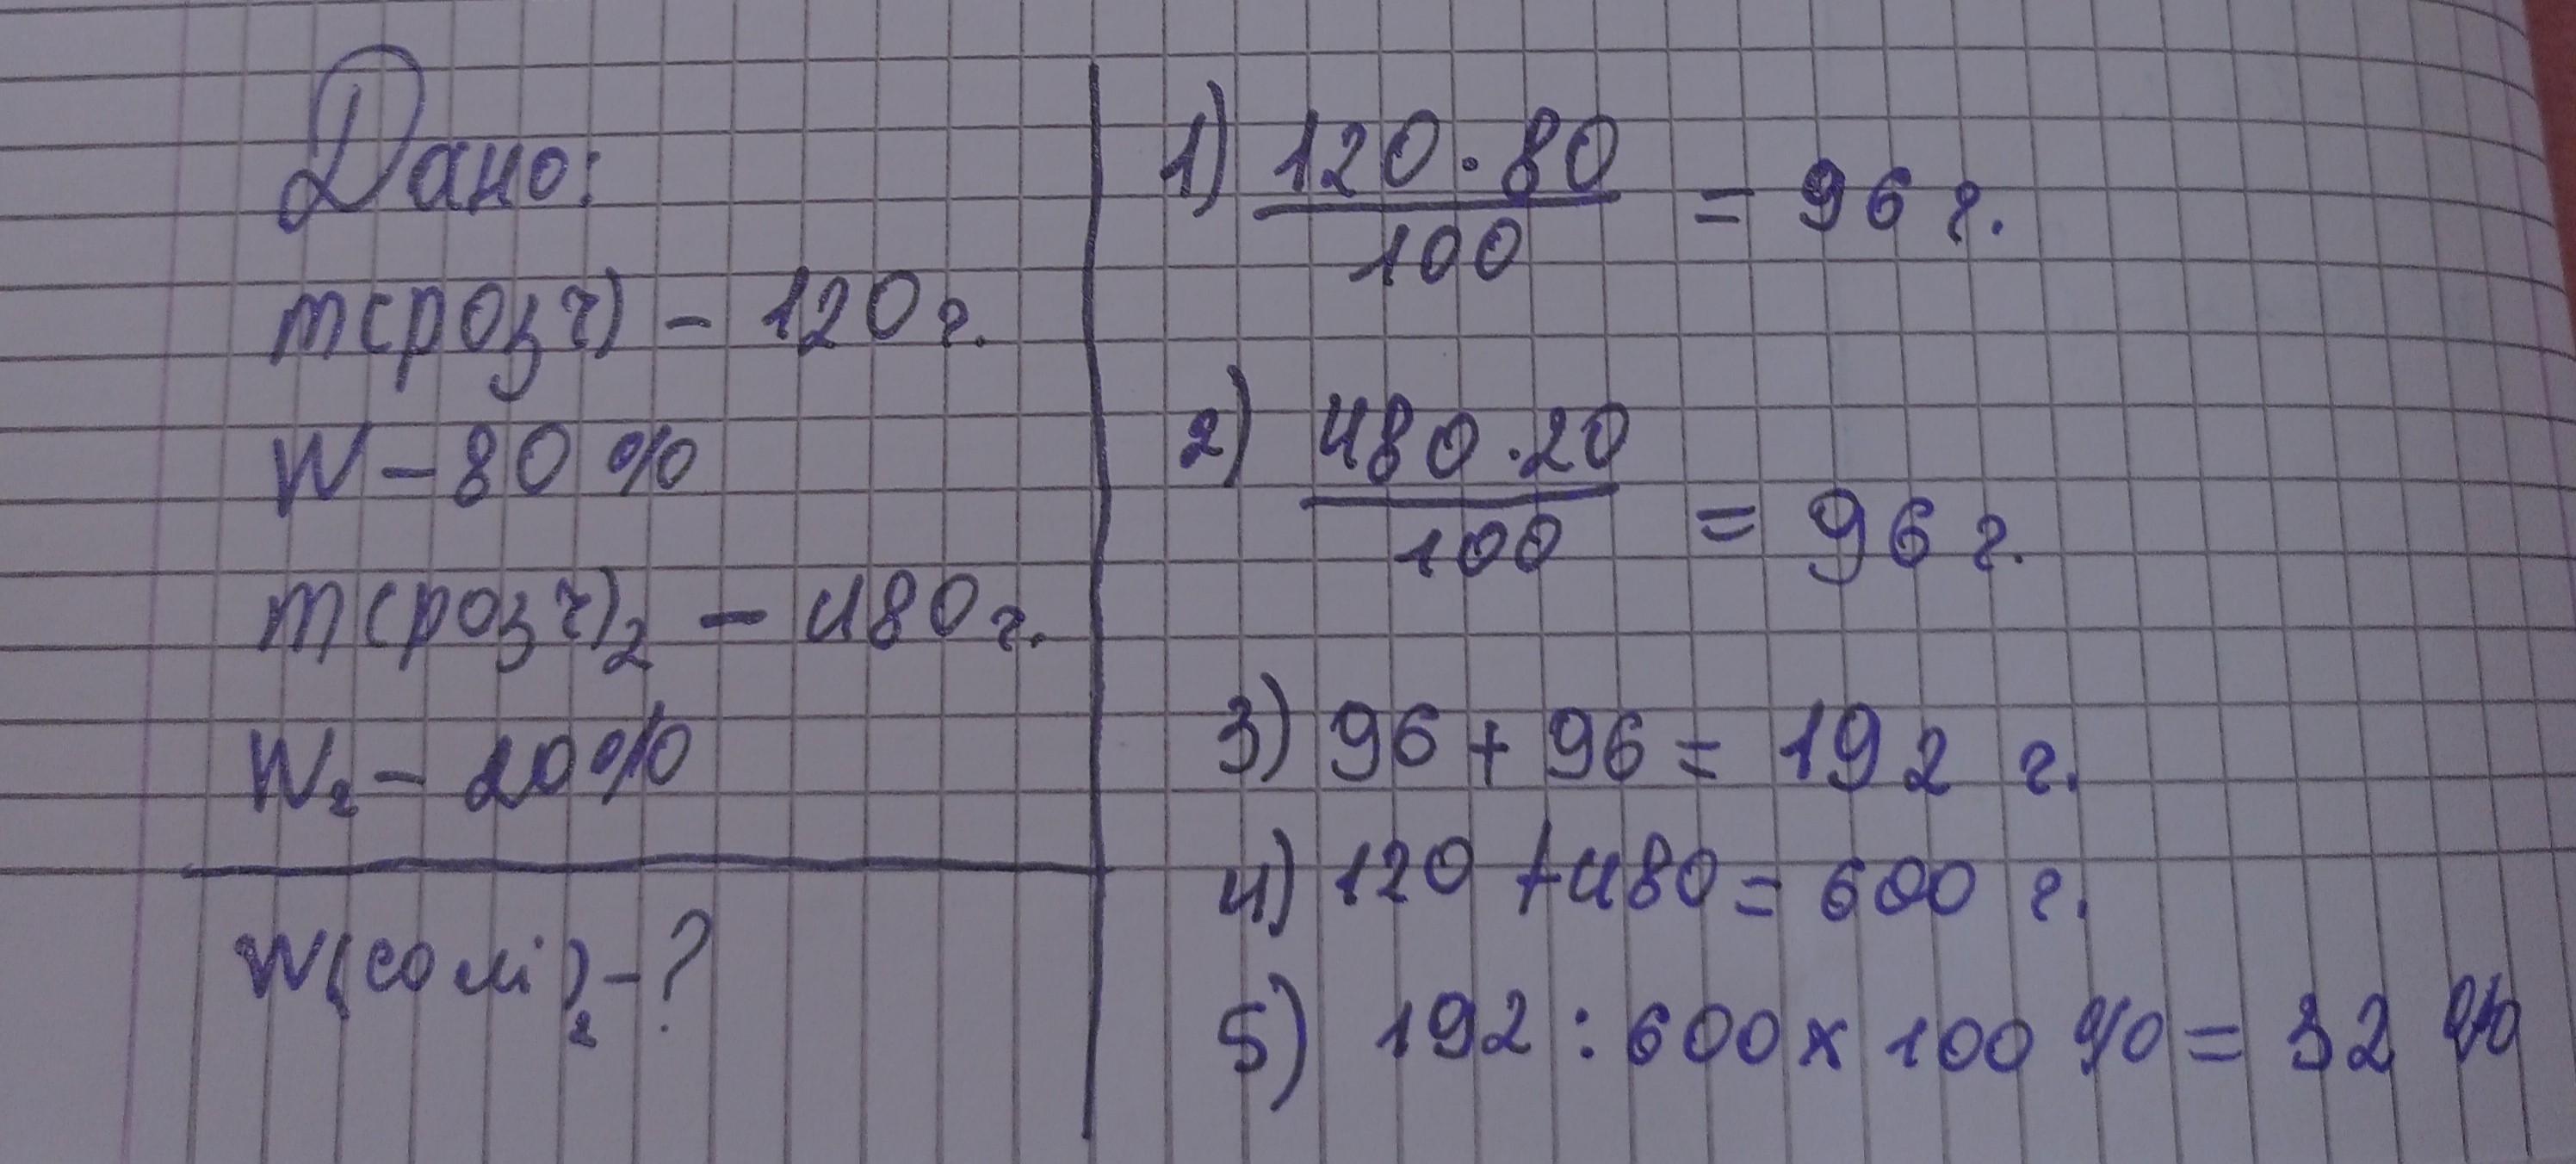 Дано:
m(розч) – 120 г.
W – 80 %
m(розч)₂ – 480 г.
W₂ – 20%
W(солі)₂ – ?
1) 120 · 80
100
= 96 г.
2) 480 · 20
100
= 96 г.
3) 96 + 96 = 192 г.
4) 120 + 480 = 600 г.
5) 192 : 600 × 100 % = 32 %